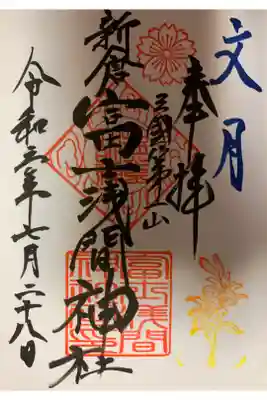 文月
奉拝
三國第一山
新倉富士浅間神社
令和三年七月二十八日
冨士浅間神社